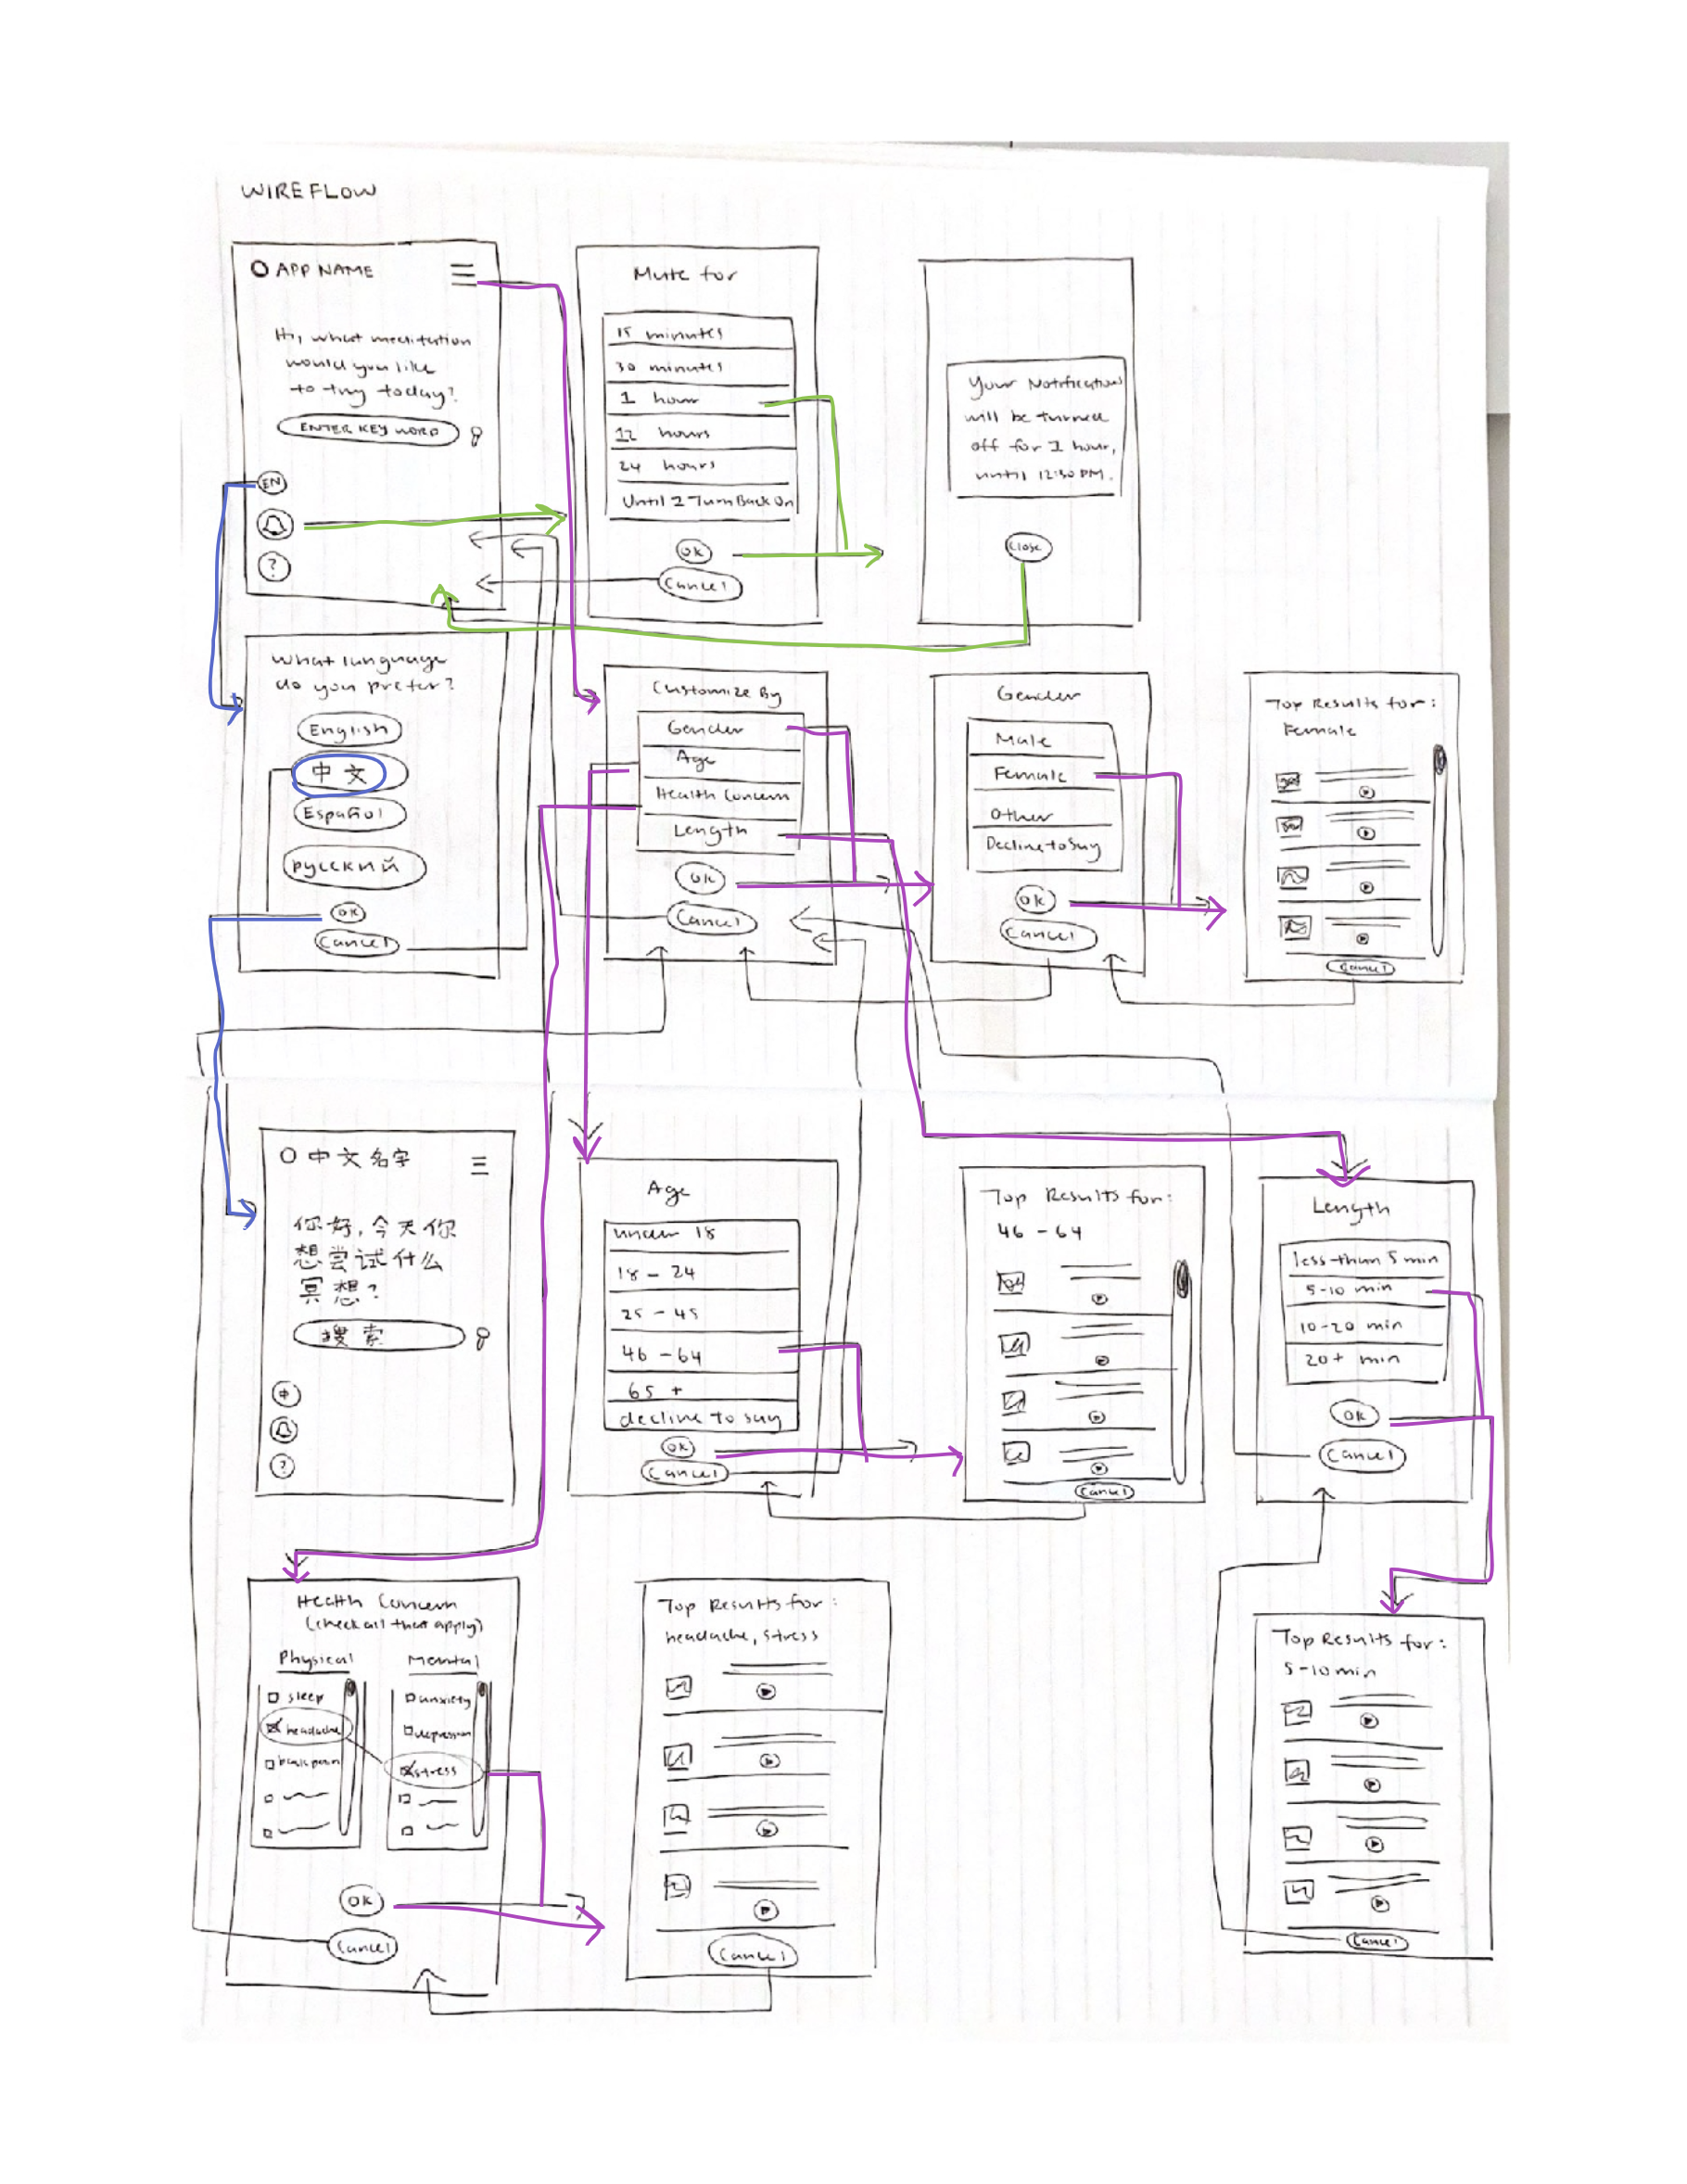 WIREFLOW
APP NAME
Hi, what meditation
would you like
to try today?
ENTER KEY WORD
EN
?
Mute for
15 minutes
30 minutes
1 hour
12 hours
24 hours
Until I Turn Back On
OK
Cancel
Your Notifications
will be turned
off for 1 hour,
until 12:30 PM.
Close
What language
do you prefer?
English
中文
Español
русский
OK
Cancel
Customize By
Gender
Age
Health Concern
Length
OK
Cancel
Gender
Male
Female
Other
Decline to Say
OK
Cancel
Top Results for:
Female
Cancel
中文名字
你好,今天你
想尝试什么
冥想?
搜索
中
?
Age
under 18
18 - 24
25 - 45
46 - 64
65 +
decline to say
OK
Cancel
Top Results for:
46 - 64
Cancel
Length
less than 5 min
5-10 min
10-20 min
20+ min
OK
Cancel
Health Concern
(check all that apply)
Physical
sleep
headache
back pain
Mental
anxiety
depression
stress
OK
Cancel
Top Results for:
headache, stress
Cancel
Top Results for:
5-10 min
Cancel